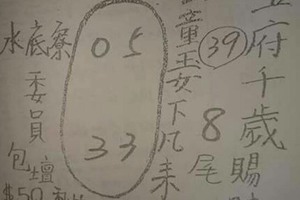 府千歲賜
39
8尾
童玉女下凡来
05
33
水底寮
委員
包壇
$50